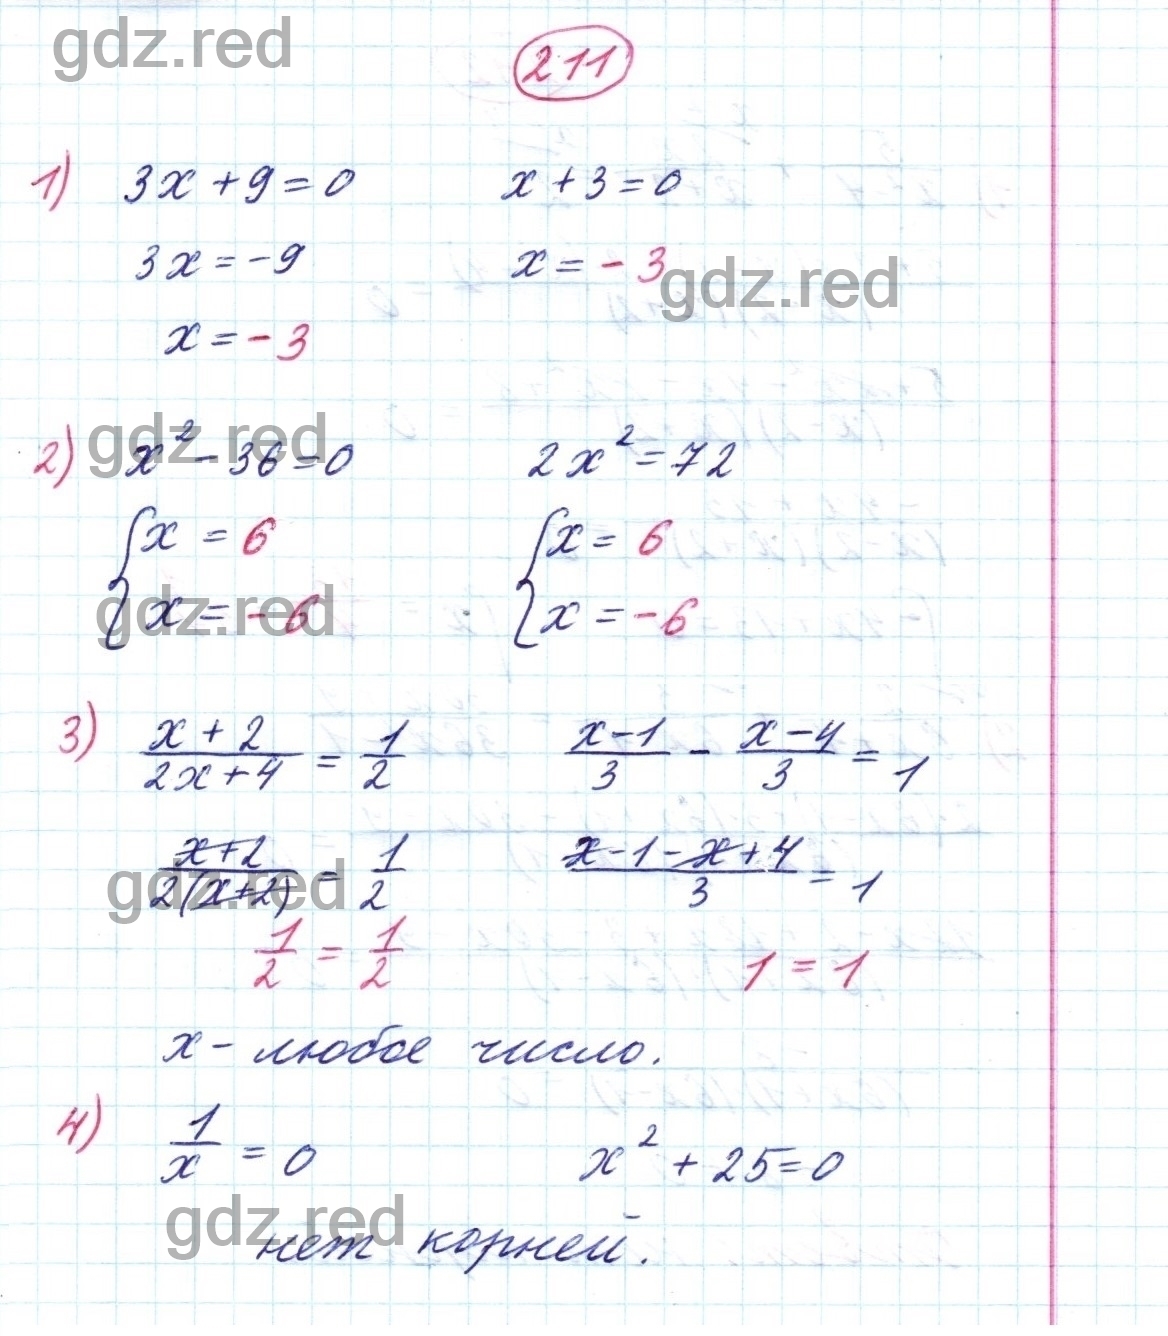 gdz.red
211
1) 3x + 9 = 0 x + 3 = 0
3x = -9 x = -3
gdz.red
x = -3
gdz.red
2) x² - 36 = 0 2x² = 72
{x = 6 {x = 6
{x = -6 {x = -6
gdz.red
3) (x + 2)/(2x + 4) = 1/2 (x - 1)/3 - (x - 4)/3 = 1
(x + 2)/(2(x + 2)) = 1/2 (x - 1 - x + 4)/3 = 1
gdz.red
1/2 = 1/2 1 = 1
x - любое число.
4) 1/x = 0 x² + 25 = 0
gdz.red
нет корней.